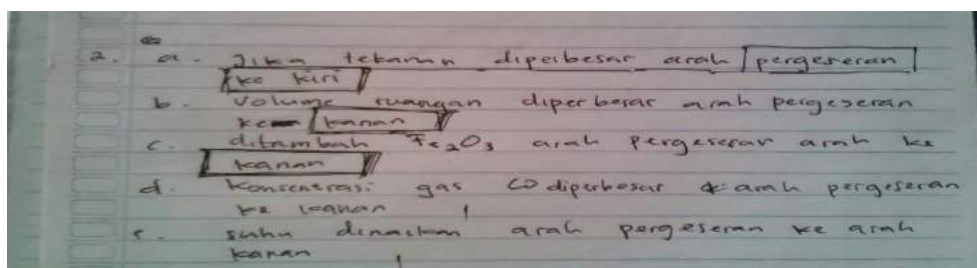 2. a. Jika tekanan diperbesar arah pergeseran
ke kiri
b. Volume ruangan diperbesar arah pergeseran
ke kanan
c. ditambah Fe2O3 arah pergeseran arah ke
kanan
d. Konsentrasi gas CO diperbesar arah pergeseran
ke kanan
e. suhu dinaikan arah pergeseran ke arah
kanan